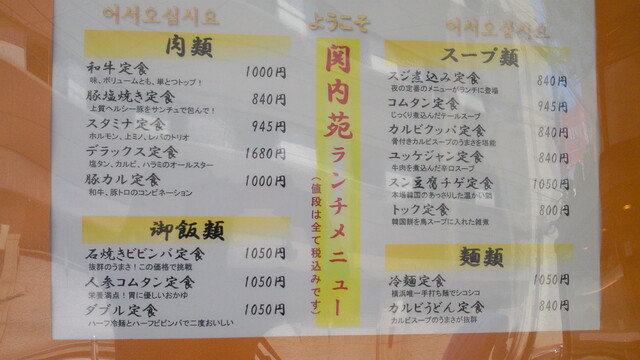 어서오십시요
ようこそ
어서오십시요
肉類
和牛定食 1000円
味、ボリュームとも、単とつトップ!
豚塩焼き定食 840円
上質ヘルシー豚をサンチュで包んで!
スタミナ定食 945円
ホルモン、上ミノ、レバのトリオ
デラックス定食 1680円
塩タン、カルビ、ハラミのオールスター
豚カル定食 1000円
和牛、豚トロのコンビネーション
御飯類
石焼きビビンバ定食 1050円
抜群のうまさ!この価格で挑戦
人参コムタン定食 1050円
栄養満点!胃に優しいおかゆ
ダブル定食 1050円
ハーフ冷麺とハーフビビンバで二度おいしい
関内苑ランチメニュー
(値段は全て税込みです)
スープ類
スジ煮込み定食 840円
夜の定番のメニューがランチに登場
コムタン定食 945円
じっくり煮込んだテールスープ
カルビクッパ定食 840円
骨付きカルビスープのうまさを堪能
ユッケジャン定食 840円
牛肉を煮込んだ辛口スープ
スン豆腐チゲ定食 1050円
本場韓国のあっさりした温かい鍋
トック定食 800円
韓国餅を鳥スープに入れた雑煮
麺類
冷麺定食 1050円
横浜唯一手打ち麺でシコシコ
カルビうどん定食 840円
カルビスープのうまさが抜群